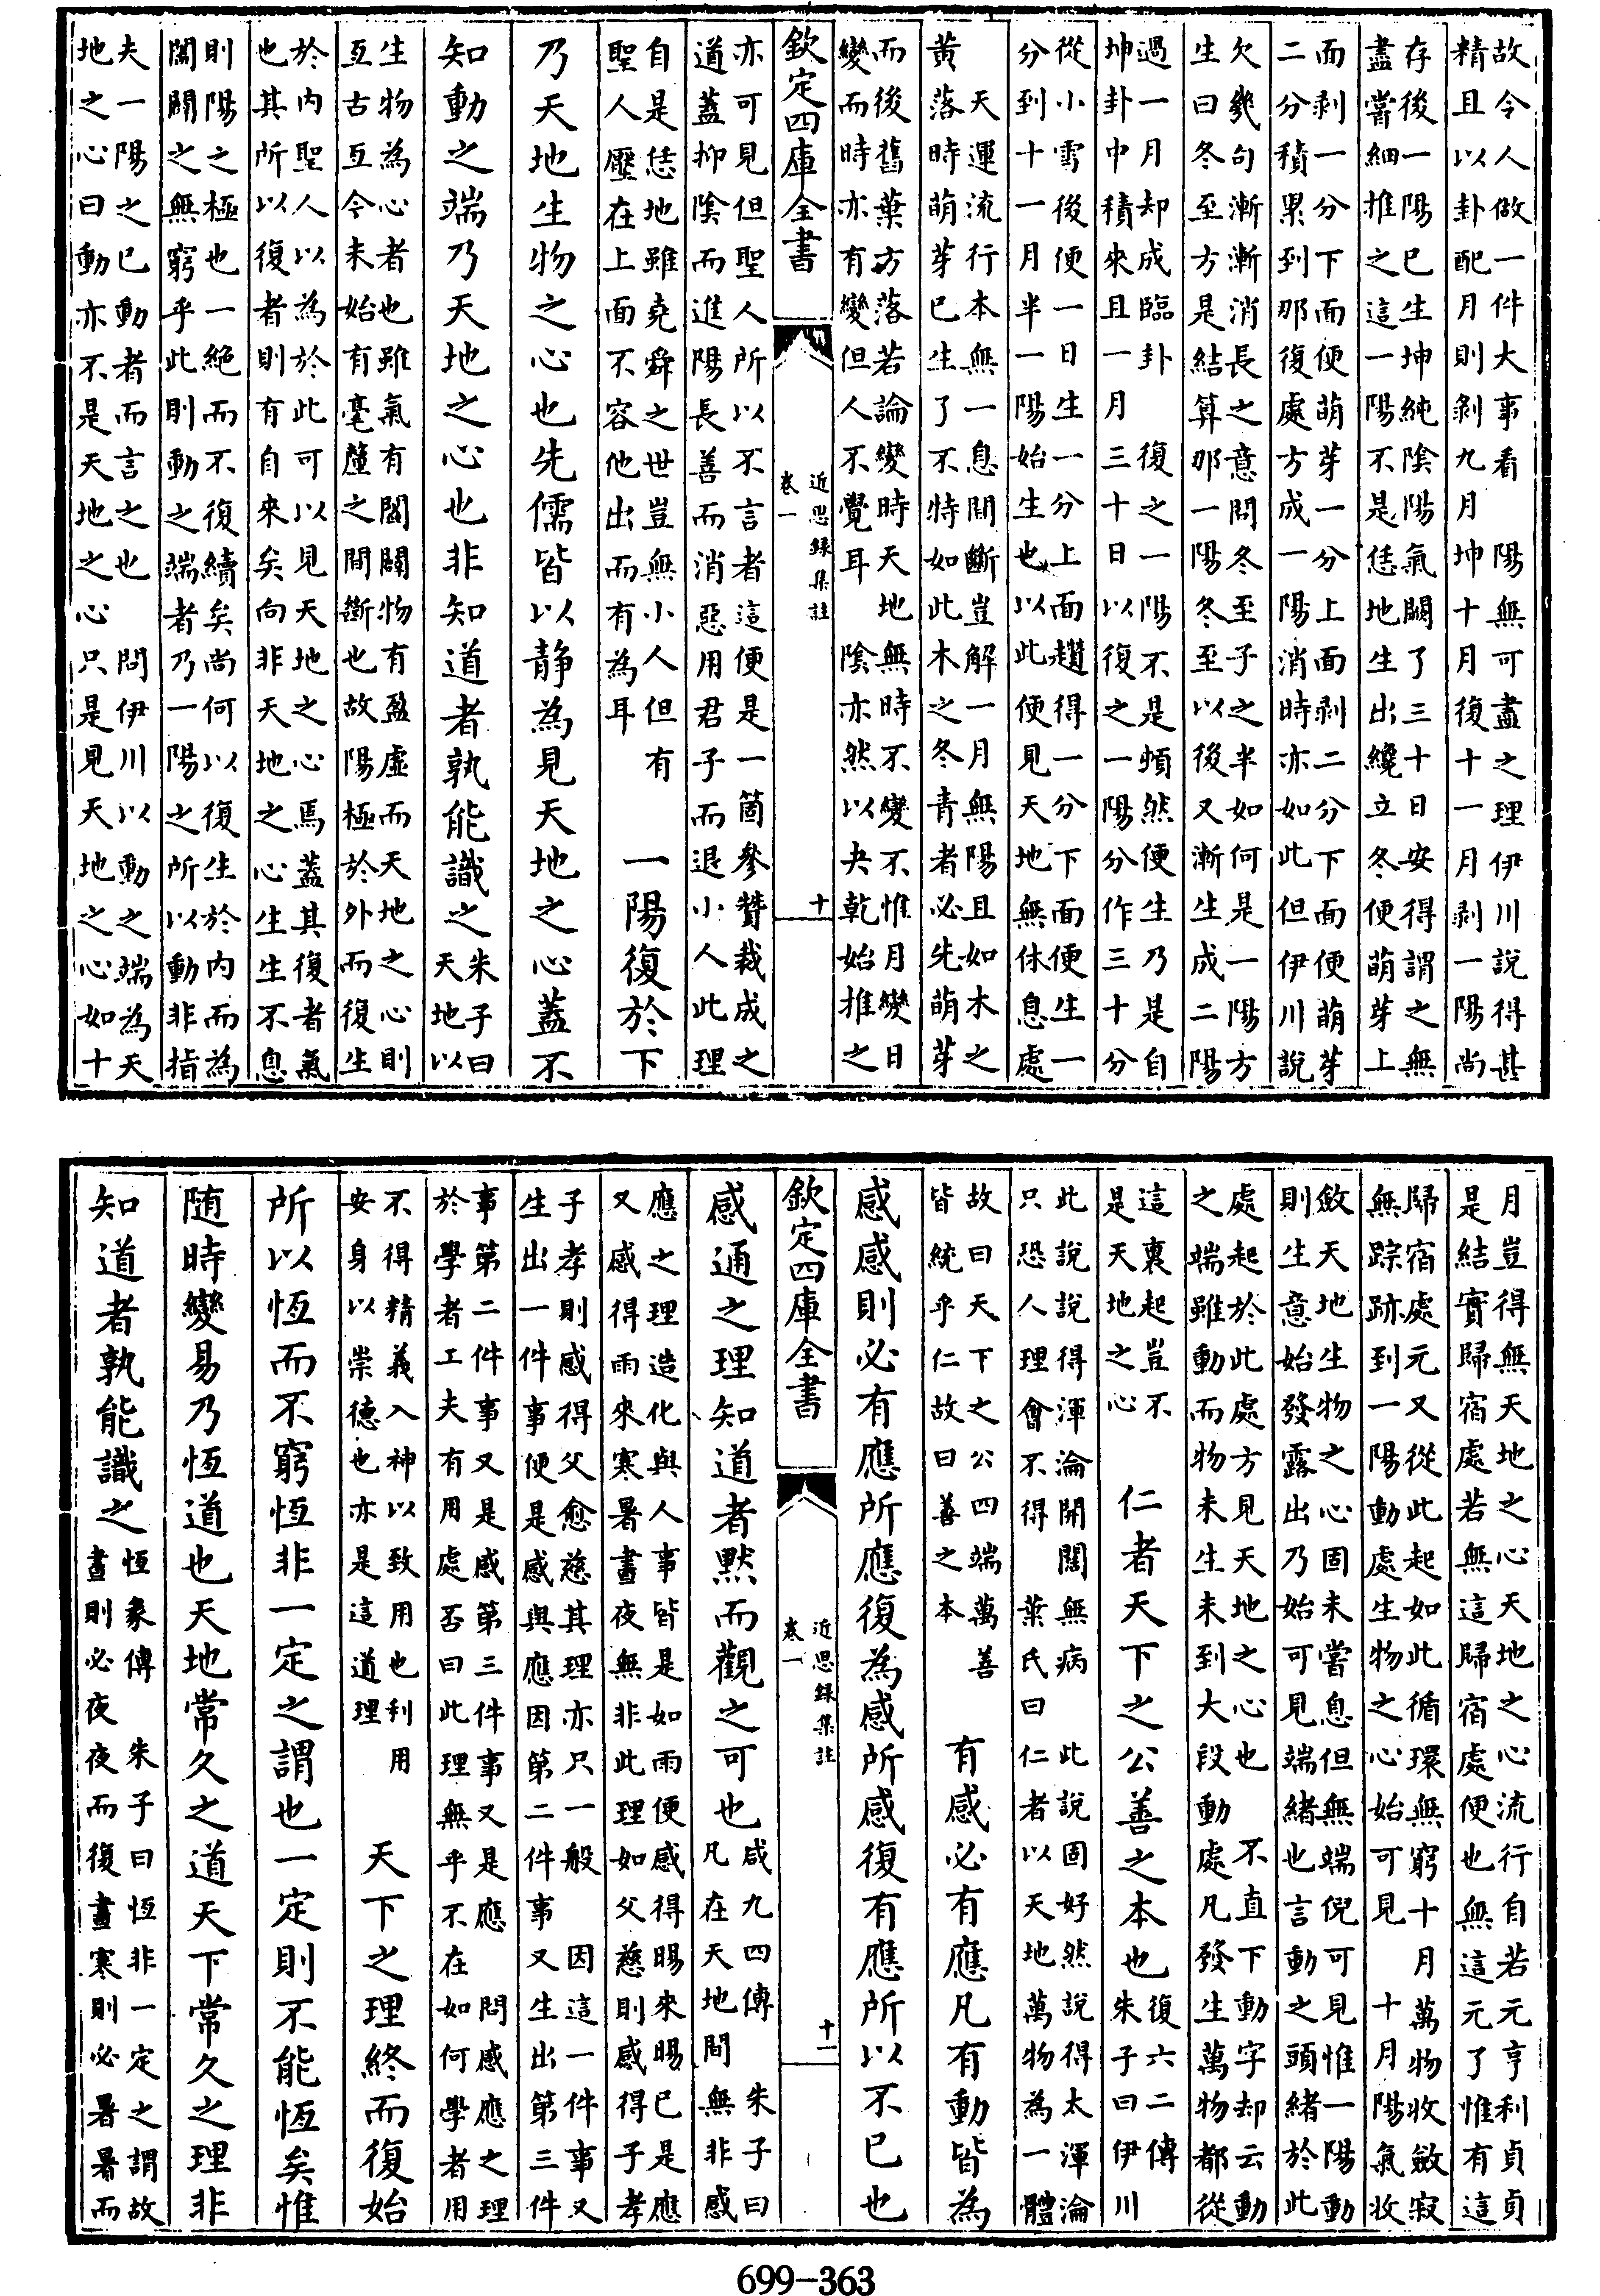 故令人做一件大事看　陽無可盡之理伊川說得甚
精且以卦配月則剥九月　坤十月復十一月剥一陽尚
存後一陽已生坤純陰陽氣闕了三十日安得謂之無
盡嘗細推之這一陽不是恁地生出纔立冬便萌芽上
面剥一分下面便萌芽一分上面剥二分下面便萌芽
二分積累到那復處方成一陽消時亦如此但伊川說
欠㡬句漸漸消長之意問冬至子之半如何是一陽方
生曰冬至方是結算那一陽冬至以後又漸生成二陽
過一月却成臨卦　復之一陽不是頓然便生乃是自
坤卦中積來且一月三十日以復之一陽分作三十分
從小雪後便一日生一分上面趲得一分下面便生一
分到十一月半一陽始生也以此便見天地無休息處
天運流行本無一息間斷豈解一月無陽且如木之
黄落時萌芽已生了不特如此木之冬青者必先萌芽
而後舊葉方落若論變時天地無時不變不惟月變日
變而時亦有變但人不覺耳　陰亦然以夬乾始推之
欽定四庫全書
近思録集註
卷一
十
亦可見但聖人所以不言者這便是一箇參贊裁成之
道蓋抑陰而進陽長善而消惡用君子而退小人此理
自是恁地雖堯舜之世豈無小人但有
聖人壓在上面不容他出而有為耳
一陽復於下
乃天地生物之心也先儒皆以静為見天地之心蓋不
知動之端乃天地之心也非知道者孰能識之
朱子曰
天地以
生物為心者也雖氣有闔闢物有盈虛而天地之心則
亙古亙今未始有毫釐之間斷也故陽極於外而復生
於内聖人以為於此可以見天地之心焉蓋其復者氣
也其所以復者則有自來矣向非天地之心生生不息
則陽之極也一絶而不復續矣尚何以復生於内而為
闔闢之無窮乎此則動之端者乃一陽之所以動非指
夫一陽之已動者而言之也　問伊川以動之端為天
地之心曰動亦不是天地之心只是見天地之心如十
月豈得無天地之心天地之心流行自若元亨利貞貞
是結實歸宿處若無這歸宿處便也無這元了惟有這
歸宿處元又從此起如此循環無窮十月萬物收斂寂
無踪跡到一陽動處生物之心始可見　十月陽氣收
斂天地生物之心固未嘗息但無端倪可見惟一陽動
則生意始發露出乃始可見端緒也言動之頭緒於此
處起於此處方見天地之心也　不直下動字却云動
之端雖動而物未生未到大段動處凡發生萬物都從
這裏起豈不
是天地之心
仁者天下之公善之本也
復六二傳
朱子曰伊川
此說說得渾淪開闊無病　此說固好然說得太渾淪
只恐人理會不得　葉氏曰仁者以天地萬物為一體
故曰天下之公四端萬善
皆統乎仁故曰善之本
有感必有應凡有動皆為
感感則必有應所應復為感所感復有應所以不已也
欽定四庫全書
近思録集註
卷一
十一
感通之理知道者默而觀之可也
咸九四傳　朱子曰
凡在天地間　無非感
應之理造化與人事皆是如雨便感得暘來暘已是應
又感得雨來寒暑晝夜無非此理如父慈則感得子孝
子孝則感得父愈慈其理亦只一般　因這一件事又
生出一件事便是感與應因第二件事又生出第三件
事第二件事又是感第三件事又是應　問感應之理
於學者工夫有用處否曰此理無乎不在　如何學者用
不得精義入神以致用也利用
安身以崇德也亦是這道理
天下之理終而復始
所以恆而不窮恆非一定之謂也一定則不能恆矣惟
随時變易乃恆道也天地常久之道天下常久之理非
知道者孰能識之
恆彖傳　朱子曰恆非一定之謂故
晝則必夜夜而復晝寒則必暑暑而
699-363